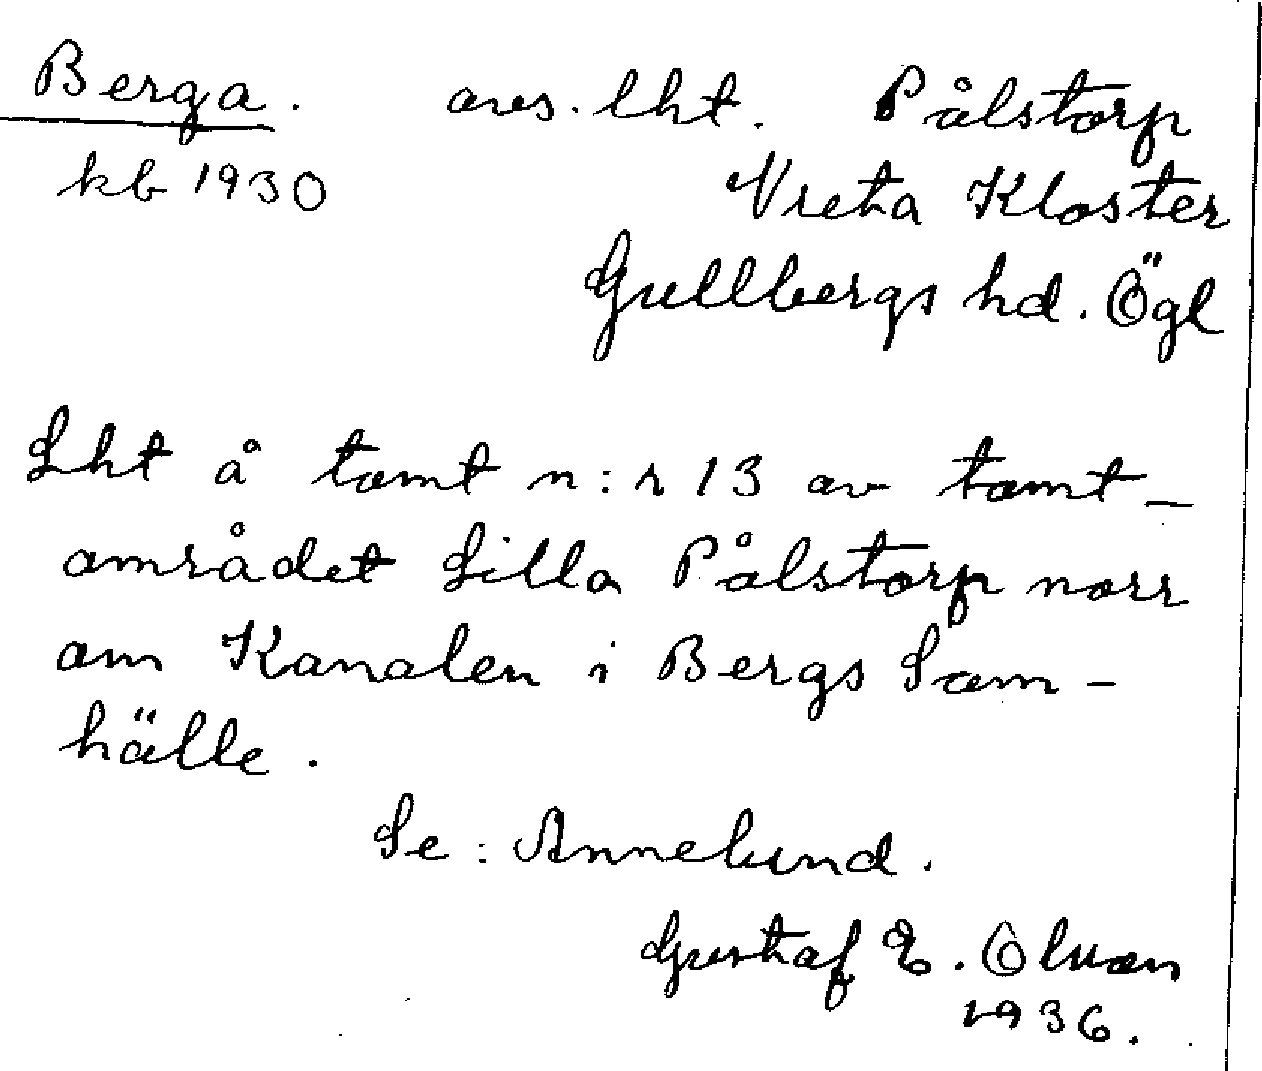 Berga. avs. lht. Pålstorp
kb 1930 Vreta Kloster
Gullbergs hd. Ögl
Lht å tomt n:r 13 av tomt-
området Lilla Pålstorp norr
om Kanalen i Bergs Sam-
hälle.
Se: Annelund.
Gustaf E. Olsson
1936.